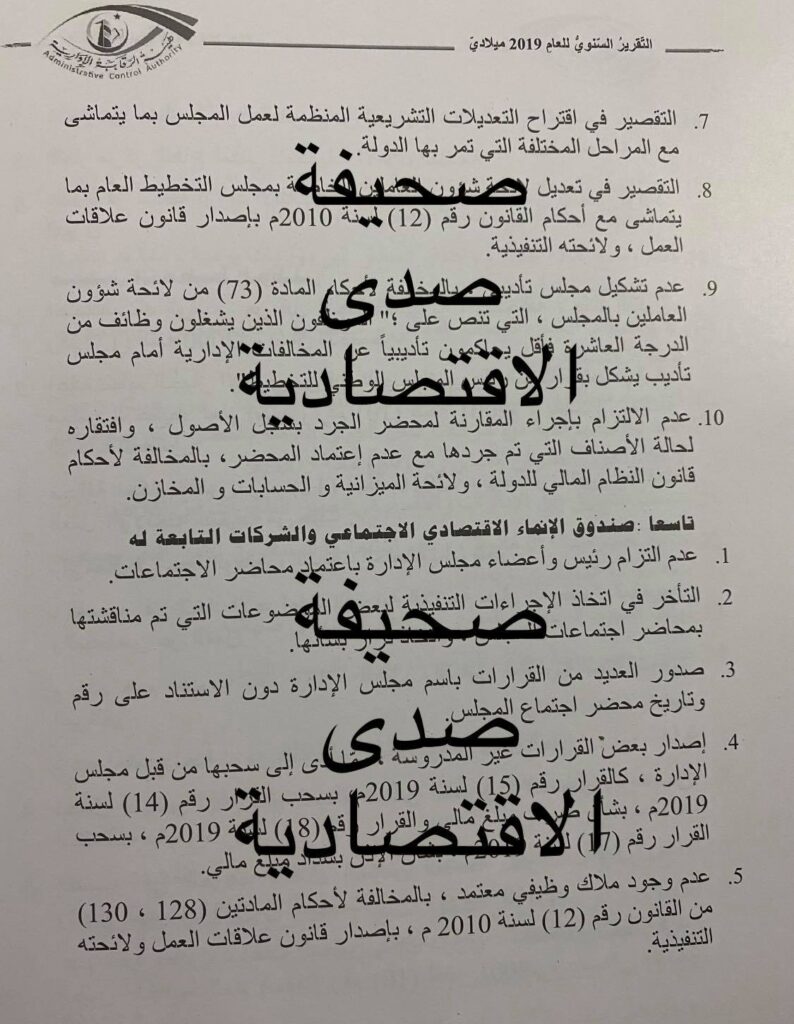 هيئة الرقابة الإدارية
Administrative Control Authority
التقرير السنوي للعام 2019 ميلادي
7. التقصير في اقتراح التعديلات التشريعية المنظمة لعمل المجلس بما يتماشى
مع المراحل المختلفة التي تمر بها الدولة.
صحيفة
8. التقصير في تعديل لائحة شؤون العاملين الخاصة بمجلس التخطيط العام بما
يتماشى مع أحكام القانون رقم (12) لسنة 2010م بإصدار قانون علاقات
العمل ، ولائحته التنفيذية.
صدى
9. عدم تشكيل مجلس تأديبي بالمخالفة لأحكام المادة (73) من لائحة شؤون
العاملين بالمجلس ، التي تنص على ؛" الموظفون الذين يشغلون وظائف من
الاقتصادية
الدرجة العاشرة فأقل يحاكمون تأديبياً عن المخالفات الإدارية أمام مجلس
تأديب يشكل بقرار من رئيس المجلس الوطني للتخطيط".
10. عدم الالتزام بإجراء المقارنة لمحضر الجرد بسجل الأصول ، وافتقاره
لحالة الأصناف التي تم جردها مع عدم إعتماد المحضر، بالمخالفة لأحكام
قانون النظام المالي للدولة ، ولائحة الميزانية و الحسابات و المخازن.
تاسعا :صندوق الإنماء الاقتصادي الاجتماعي والشركات التابعة له
1. عدم التزام رئيس وأعضاء مجلس الإدارة باعتماد محاضر الاجتماعات.
2. التأخر في اتخاذ الإجراءات التنفيذية لبعض الموضوعات التي تم مناقشتها
صحيفة
بمحاضر اجتماعات المجلس ، واتخاذ قرار بشأنها.
3. صدور العديد من القرارات باسم مجلس الإدارة دون الاستناد على رقم
وتاريخ محضر اجتماع المجلس.
صدى
4. إصدار بعض القرارات غير المدروسة ، مما أدى إلى سحبها من قبل مجلس
الإدارة ، كالقرار رقم (15) لسنة 2019م بسحب القرار رقم (14) لسنة
الاقتصادية
2019م ، بشأن صرف مبلغ مالي والقرار رقم (18) لسنة 2019م ، بسحب
القرار رقم (17) لسنة 2019م ، بشأن الإذن بسداد مبلغ مالي.
5. عدم وجود ملاك وظيفي معتمد ، بالمخالفة لأحكام المادتين (128 ، 130)
من القانون رقم (12) لسنة 2010 م ، بإصدار قانون علاقات العمل ولائحته
التنفيذية.